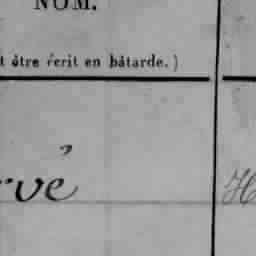 NOM.
t être écrit en bâtarde.)
rvé H